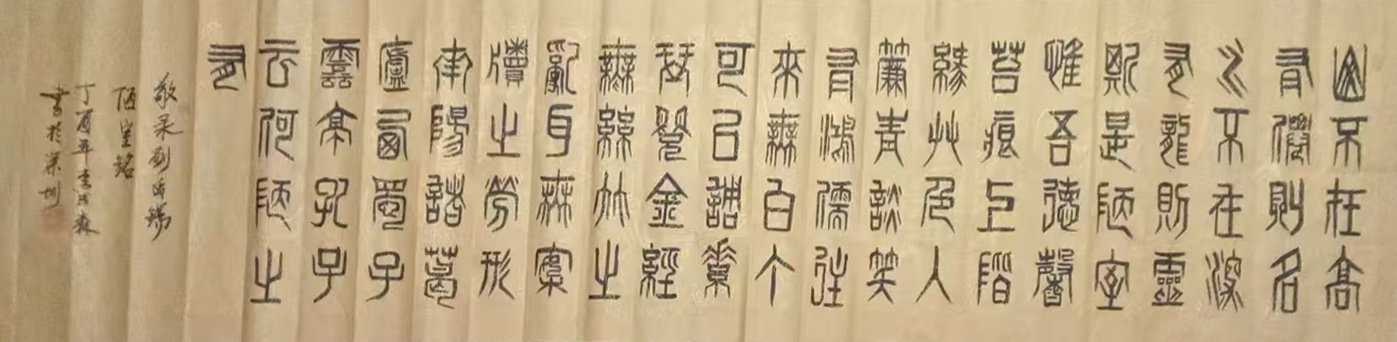 山不在高
有僊則名
水不在深
有龍則靈
斯是陋室
惟吾德馨
苔痕上階
綠艸色入
簾青談笑
有鴻儒往
來無白丁
可以調素
琴閱金經
無絲竹之
亂耳無案
牘之勞形
南陽諸葛
廬西蜀子
雲亭孔子
云何陋之
有
敬录刘禹锡
陋室铭
丁酉年李森
书於深圳